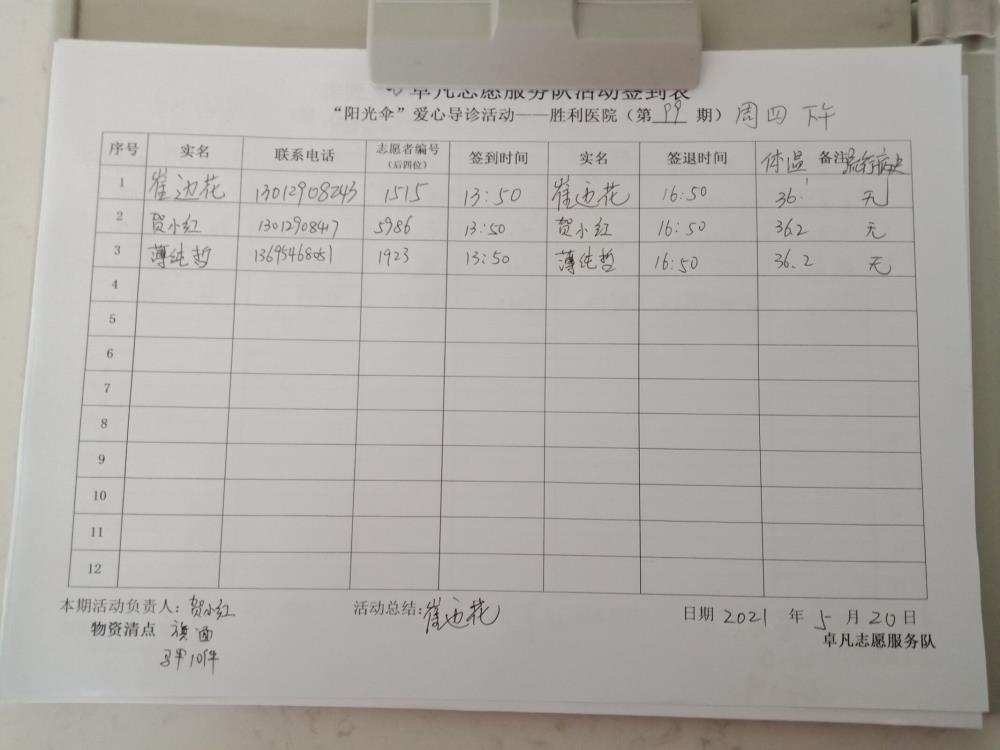 卓凡志愿服务队活动签到表
“阳光伞”爱心导诊活动——胜利医院（第 99 期）周四 下午
序号 实名 联系电话 志愿者编号（后四位） 签到时间 实名 签退时间 体温 备注 流行病史
1 崔边花 13012908243 1515 13:50 崔边花 16:50 36.1 无
2 贺小红 13012908417 5986 13:50 贺小红 16:50 36.2 无
3 薄纯哲 13695468051 1923 13:50 薄纯哲 16:50 36.2 无
4
5
6
7
8
9
10
11
12
本期活动负责人：贺小红 活动总结：崔边花 日期 2021 年 5 月 20 日
物资清点 旗 面
马甲10件
卓凡志愿服务队